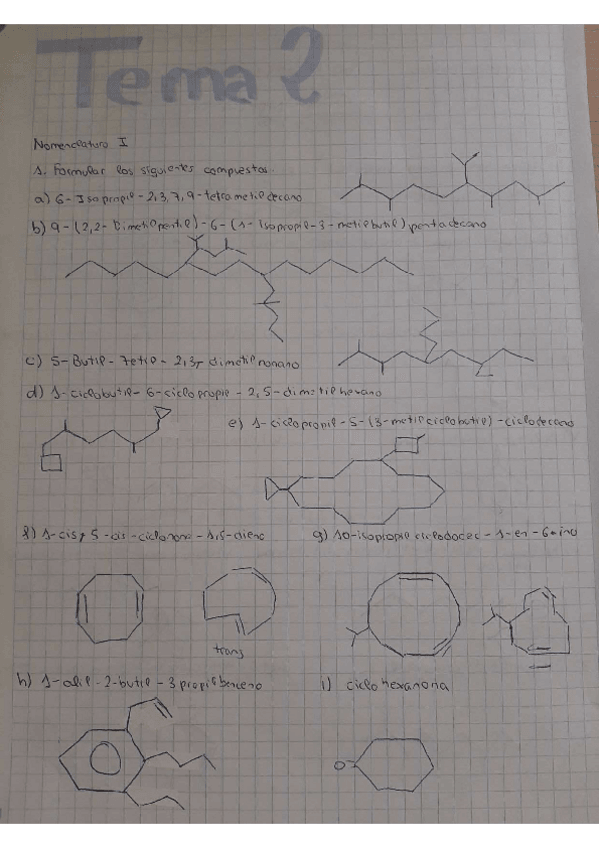 Tema 2
Nomenclatura I
1. Formular los siguientes compuestos.
a) 6-Isopropil-2,3,7,9-tetrametildecano
b) 9-(2,2-Dimetilpentil)-6-(1-Isopropil-3-metilbutil)pentadecano
c) 5-Butil-7etil-2,3,-dimetilnonano
d) 1-ciclobutil-6-ciclopropil-2,5-dimetilhexano
e) 1-ciclopropil-5-(3-metilciclobutil)-ciclodecano
f) 1-cis, 5-cis-ciclonona-1,5-dieno
g) 10-isopropil ciclododec-1-en-6-ino
trans
h) 1-alil-2-butil-3propilbenceno
i) ciclohexanona
O